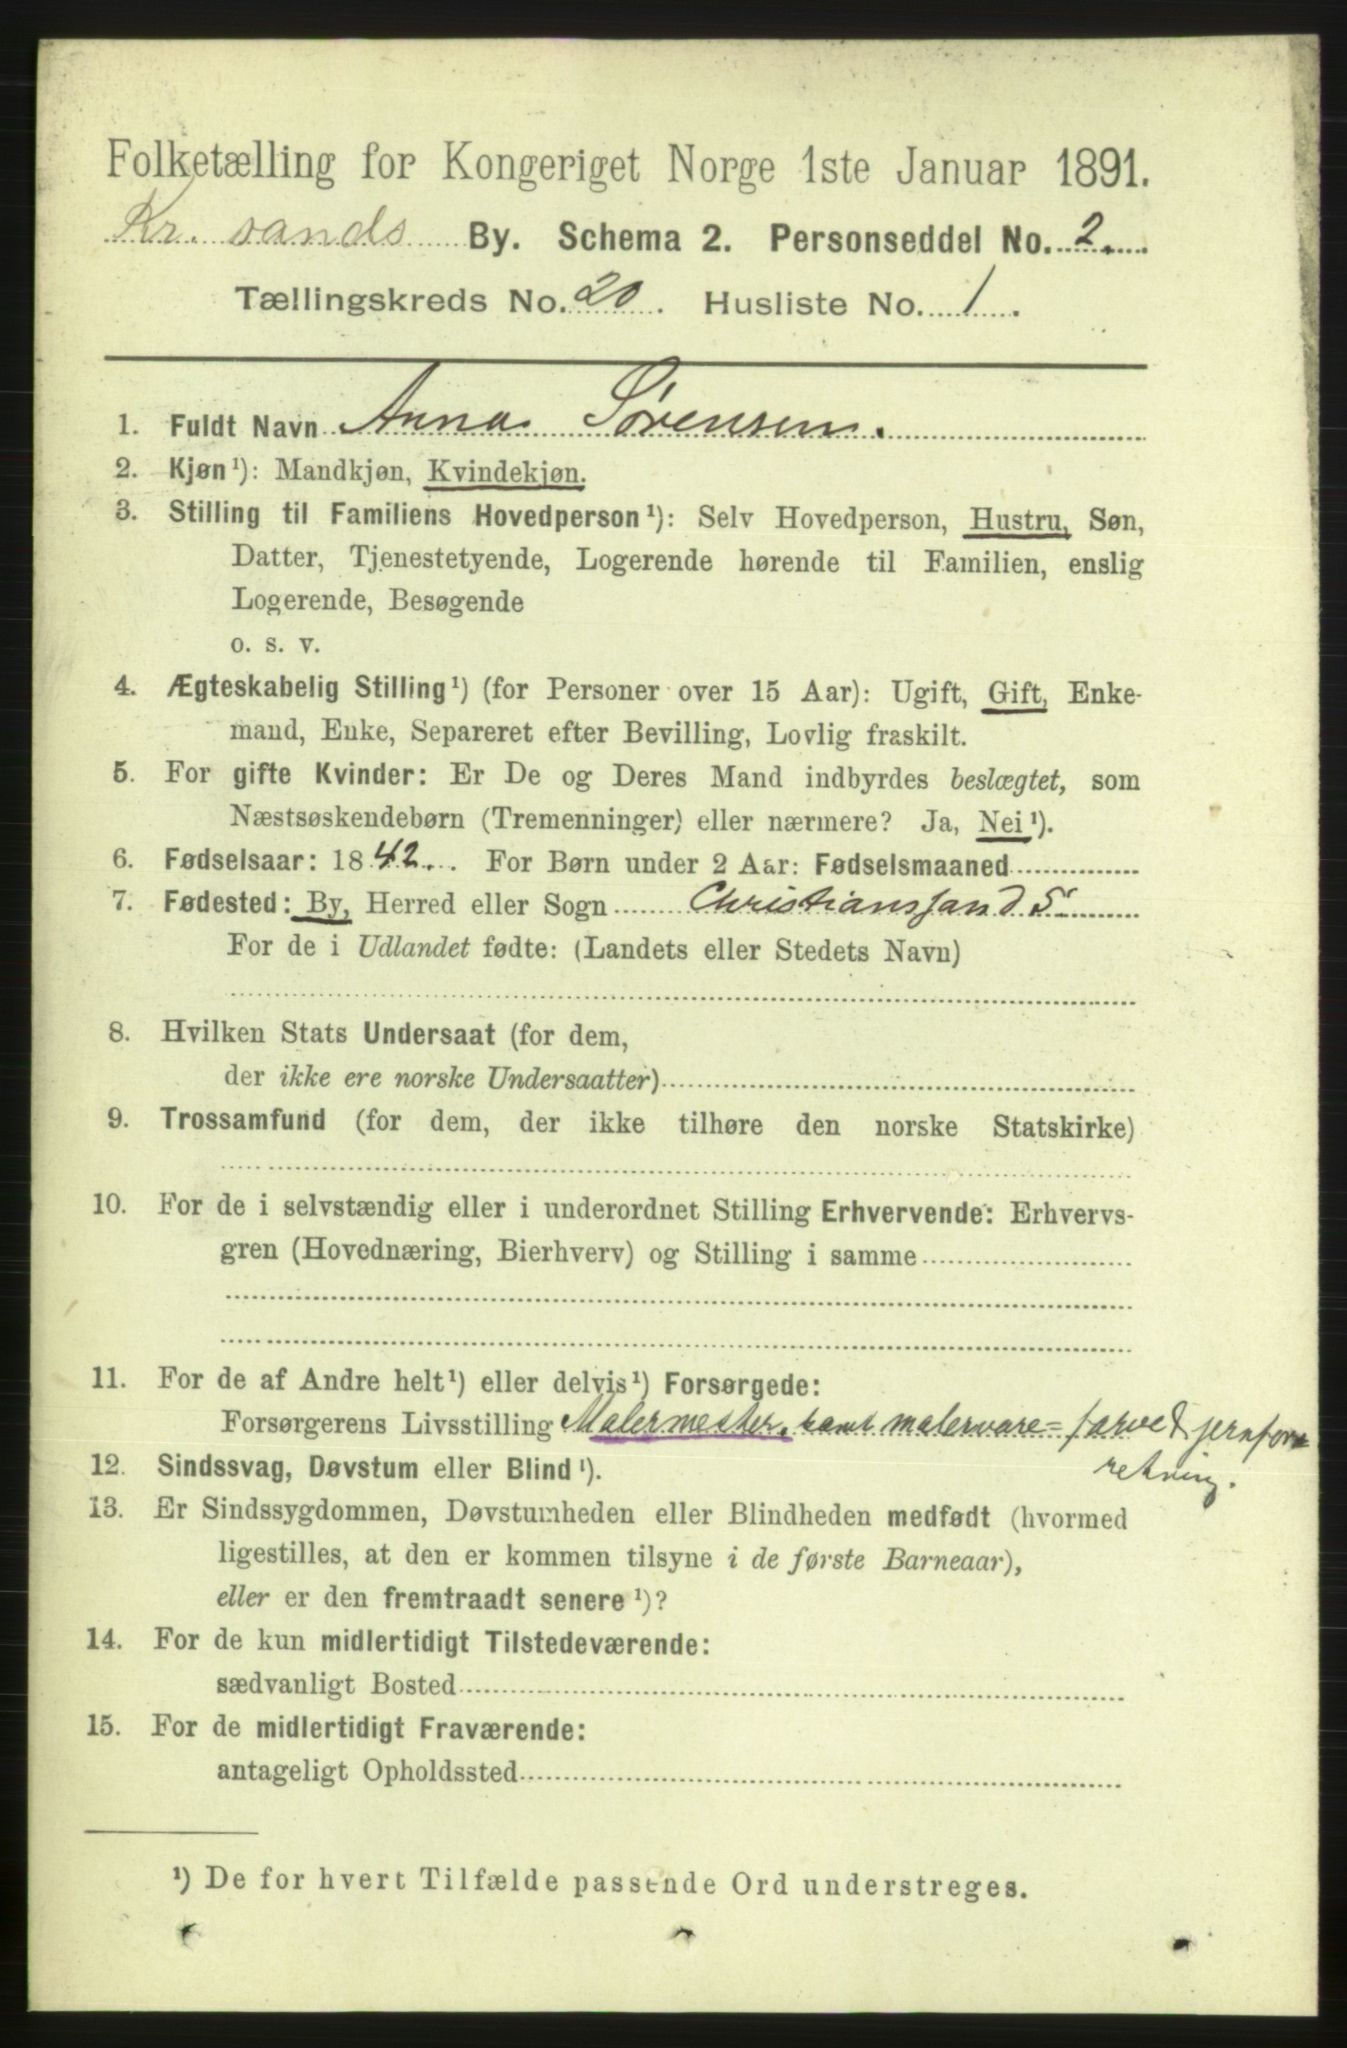 Folketælling for Kongeriget Norge 1ste Januar 1891.
Kr. sands By. Schema 2. Personseddel No. 2.
Tællingskreds No. 20. Husliste No. 1.
1. Fuldt Navn Anna Sørensen.
2. Kjøn¹): Mandkjøn, Kvindekjøn.
3. Stilling til Familiens Hovedperson¹): Selv Hovedperson, Hustru, Søn,
Datter, Tjenestetyende, Logerende hørende til Familien, enslig
Logerende, Besøgende
o. s. v.
4. Ægteskabelig Stilling¹) (for Personer over 15 Aar): Ugift, Gift, Enke-
mand, Enke, Separeret efter Bevilling, Lovlig fraskilt.
5. For gifte Kvinder: Er De og Deres Mand indbyrdes beslægtet, som
Næstsøskendebørn (Tremenninger) eller nærmere? Ja, Nei¹).
6. Fødselsaar: 1842. For Børn under 2 Aar: Fødselsmaaned
7. Fødested: By, Herred eller Sogn Christianssand S
For de i Udlandet fødte: (Landets eller Stedets Navn)
8. Hvilken Stats Undersaat (for dem,
der ikke ere norske Undersaatter)
9. Trossamfund (for dem, der ikke tilhøre den norske Statskirke)
10. For de i selvstændig eller i underordnet Stilling Erhvervende: Erhvervs-
gren (Hovednæring, Bierhverv) og Stilling i samme
11. For de af Andre helt¹) eller delvis¹) Forsørgede:
Forsørgerens Livsstilling Malermester, samt malervare= farve & jernfor=
retning.
12. Sindssvag, Døvstum eller Blind¹).
13. Er Sindssygdommen, Døvstumheden eller Blindheden medfødt (hvormed
ligestilles, at den er kommen tilsyne i de første Barneaar),
eller er den fremtraadt senere¹)?
14. For de kun midlertidigt Tilstedeværende:
sædvanligt Bosted
15. For de midlertidigt Fraværende:
antageligt Opholdssted
¹) De for hvert Tilfælde passende Ord understreges.